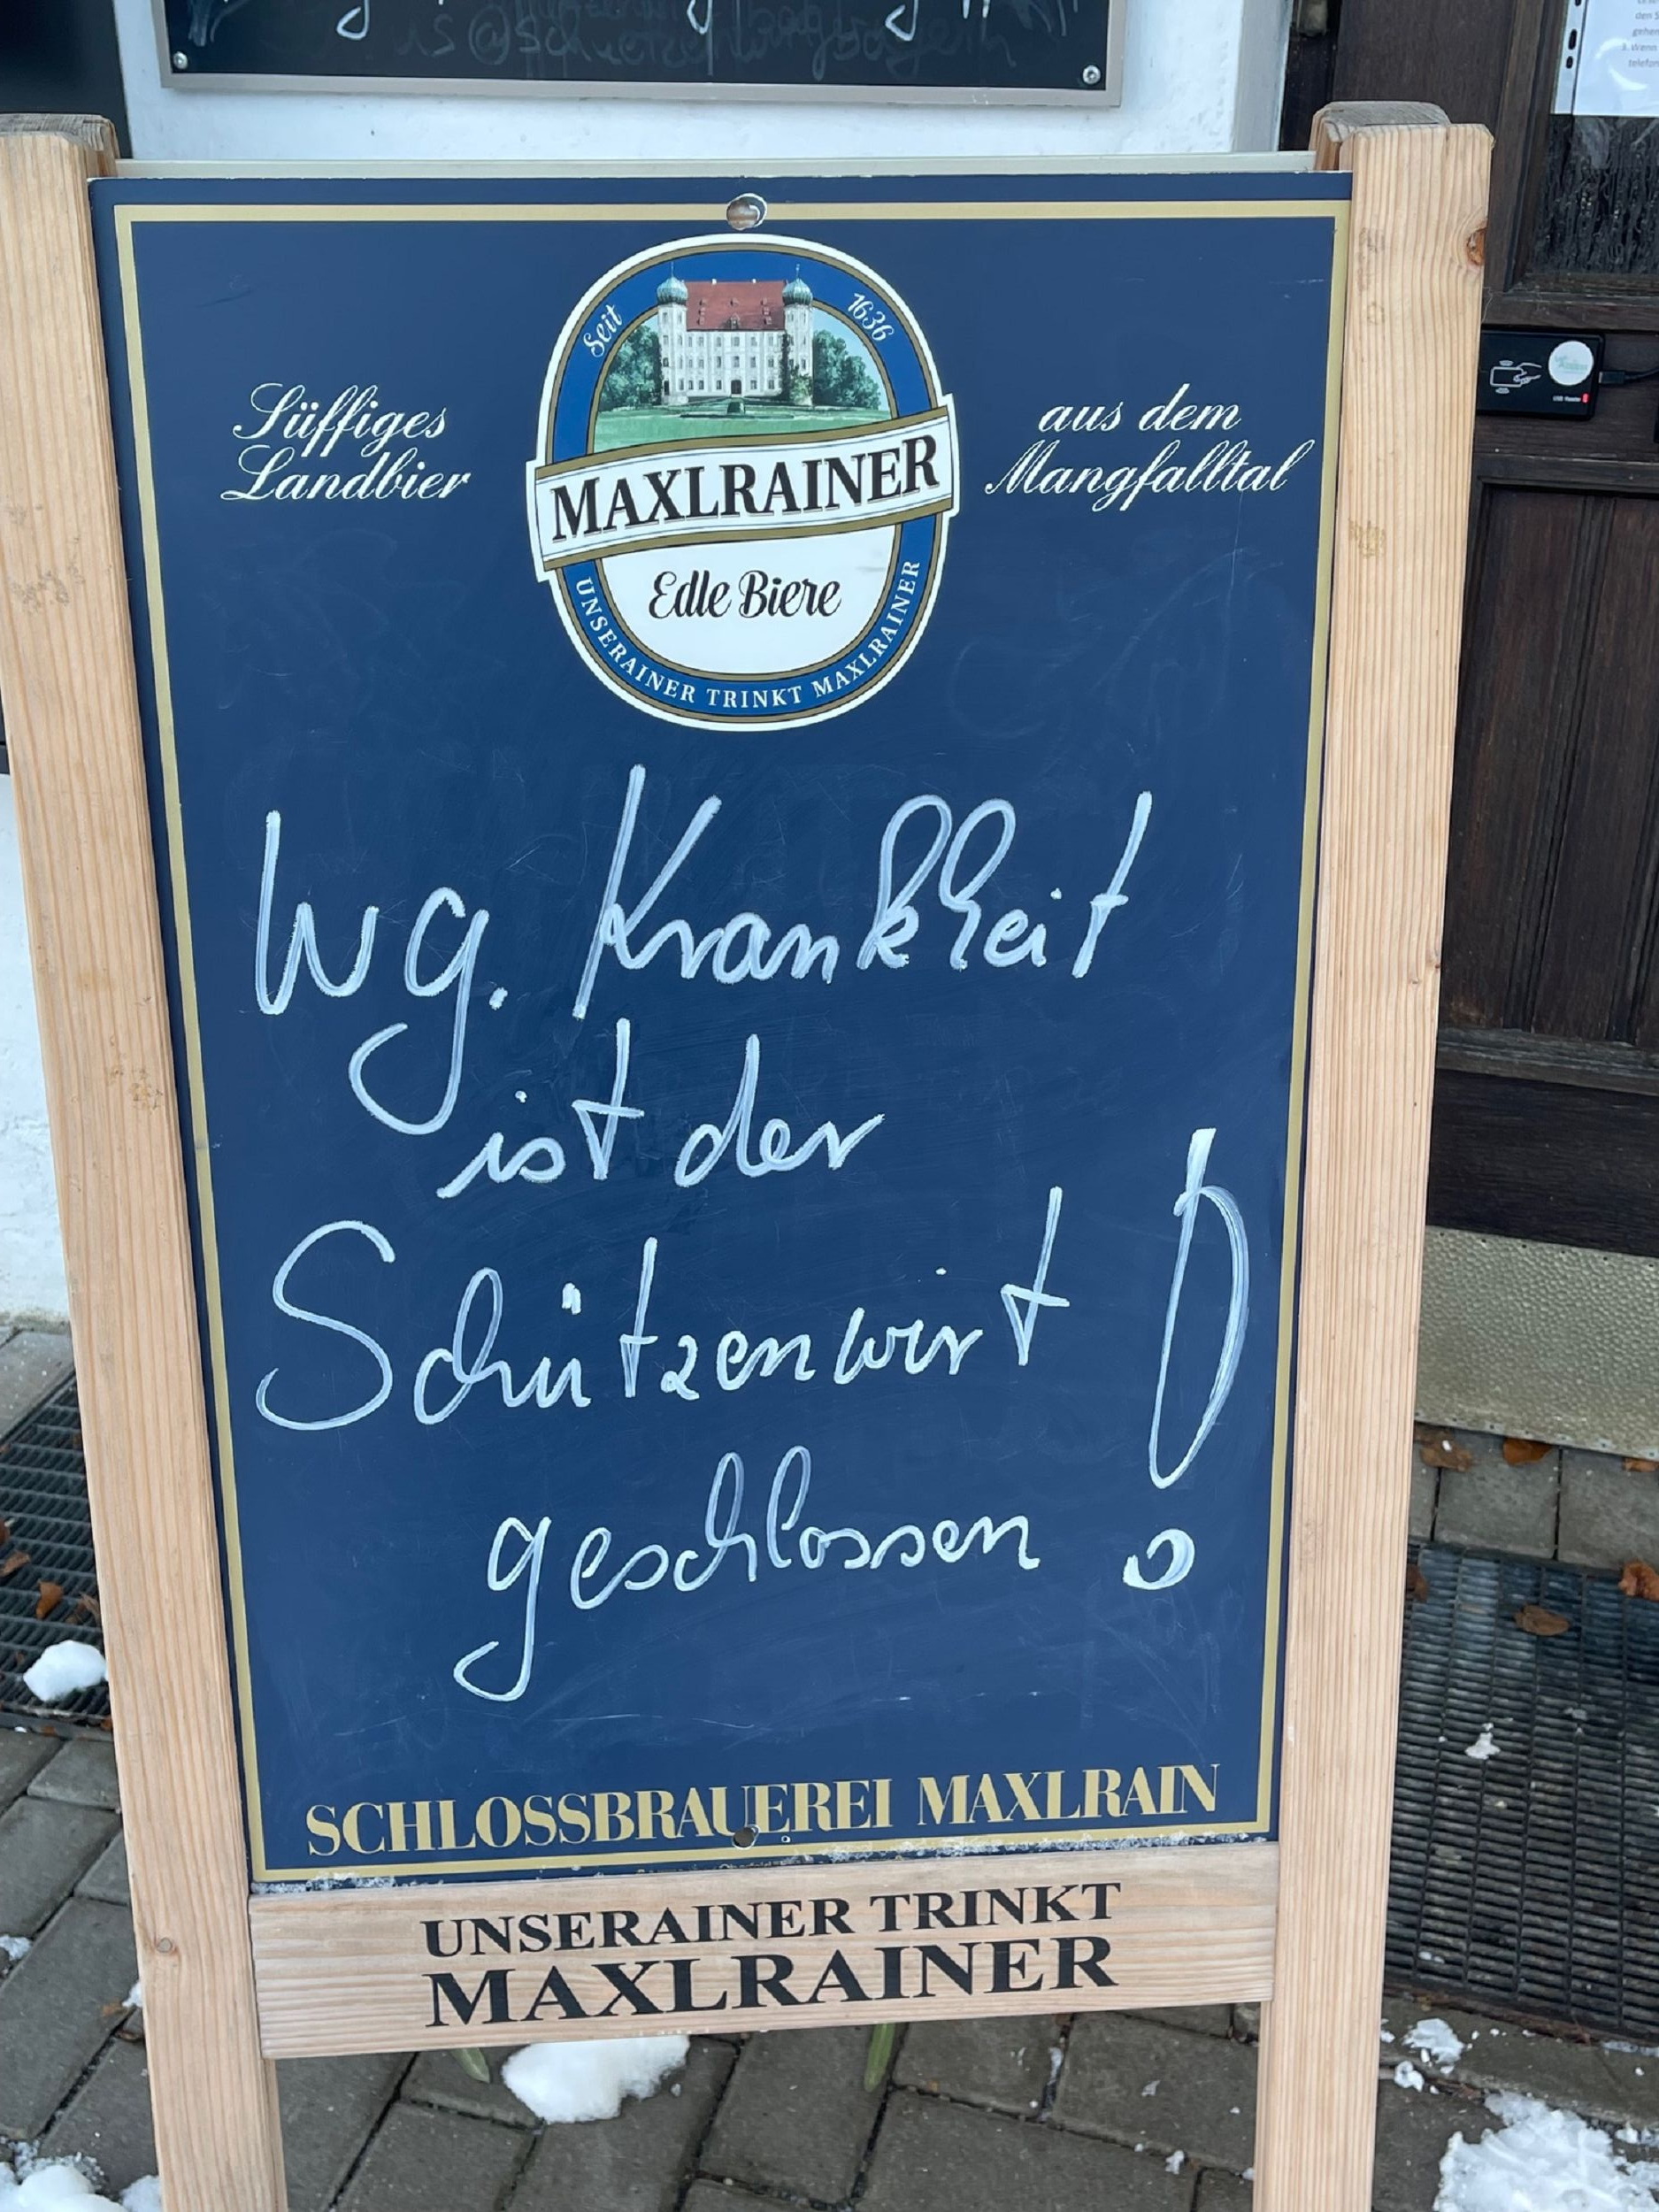 Süffiges
Landbier
Seit 1636
MAXLRAINER
Edle Biere
UNSERAINER TRINKT MAXLRAINER
aus dem
Mangfalltal
Wg. Krankheit
ist der
Schützenwirt
geschlossen !
SCHLOSSBRAUEREI MAXLRAIN
UNSERAINER TRINKT
MAXLRAINER